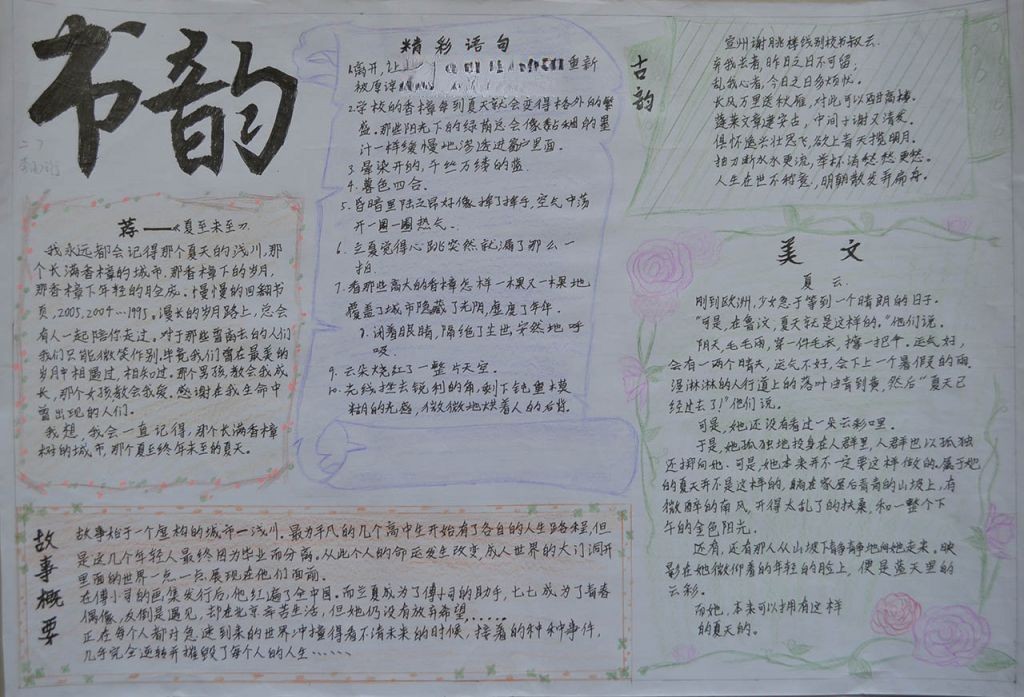 书韵
二7
荐——《夏至未至》
我永远都会记得那个夏天的浅川,那
个长满香樟的城市,那香樟下的岁月,
那香樟下年轻的脸庞。慢慢的回翻书
页,2005,2004…1995。漫长的岁月路上,总会
有人一起陪你走过。对于那些曾离去的人们
我们只能微笑作别,毕竟我们曾在最美的
岁月中相遇过,相知过。那个男孩,教会我成
长,那个女孩教会我爱。感谢在我生命中
曾出现的人们。
我想,我会一直记得,那个长满香樟
树的城市,那个夏至终年未至的夏天。
精彩语句
1.离开,让 重新
被原谅
2.学校的香樟每到夏天就会变得格外的繁
盛。那些阳光下的绿荫总会像黏稠的墨
汁一样缓慢地渗透进窗户里面。
3.晕染开的,千丝万缕的蓝.
4.暮色四合。
5.昏暗里陆之昂好像挥了挥手,空气中荡
开一圈一圈热气。
6.立夏觉得心跳突然就漏了那么一
拍.
7.看那些高大的香樟怎样一棵又一棵地
覆盖了城市隐藏了光阴,虚度了年华.
8.闭着眼睛,隔绝了尘世,安然地呼
吸.
9.云朵烧红了一整片天空.
10.光线挫去锐利的角,剩下钝重模
糊的光感,微微地烘着人的后背.
古韵
宣州谢朓楼饯别校书叔云.
弃我去者,昨日之日不可留;
乱我心者,今日之日多烦忧。
长风万里送秋雁,对此可以酣高楼。
蓬莱文章建安古,中间小谢又清发。
俱怀逸兴壮思飞,欲上青天揽明月。
抽刀断水水更流,举杯消愁愁更愁。
人生在世不称意,明朝散发弄扁舟。
美文
夏云.
刚到欧洲,少女急于等到一个晴朗的日子。
"可是,在鲁汶,夏天就是这样的。"他们说。
阴天,毛毛雨,穿一件毛衣,撑一把伞。运气好,
会有一两个晴天,运气不好,会下上一个暑假的雨.
湿淋淋的人行道上的落叶由青到黄,然后"夏天已
经过去了!"他们说。
可是,她还没有看过一朵云彩哩。
于是,她孤独地投身在人群里,人群也以孤独
还掷向她。可是,她本来并不一定要这样做的。属于她
的夏天并不是这样的,躺在家屋后青青的山坡上,有
微醉的南风,开得太乱了的扶桑,和一整个下
午的金色阳光。
还有,还有那人从山坡下静静地向她走来。映
影在她微仰着的年轻的脸上,便是蓝天里的
云彩。
而她,本来可以拥有这样
的夏天的。
故事概要
故事始于一个虚构的城市—浅川。最为平凡的几个高中生开始有了各自的人生路程,但
是这几个年轻人最终因为毕业而分离。从此个人的命运发生改变,成人世界的大门洞开
里面的世界一点一点展现在他们面前。
在傅小司的画集发行后,他红遍了全中国。而立夏成为了傅小司的助手,七七成为了青春
偶像,反倒是遇见,却在北京辛苦生活,但她仍没有放弃希望,……
正在每个人都对急速到来的世界冲撞得看不清未来的时候,接着的种种事件,
几乎完全逆转并摧毁了每个人的人生……